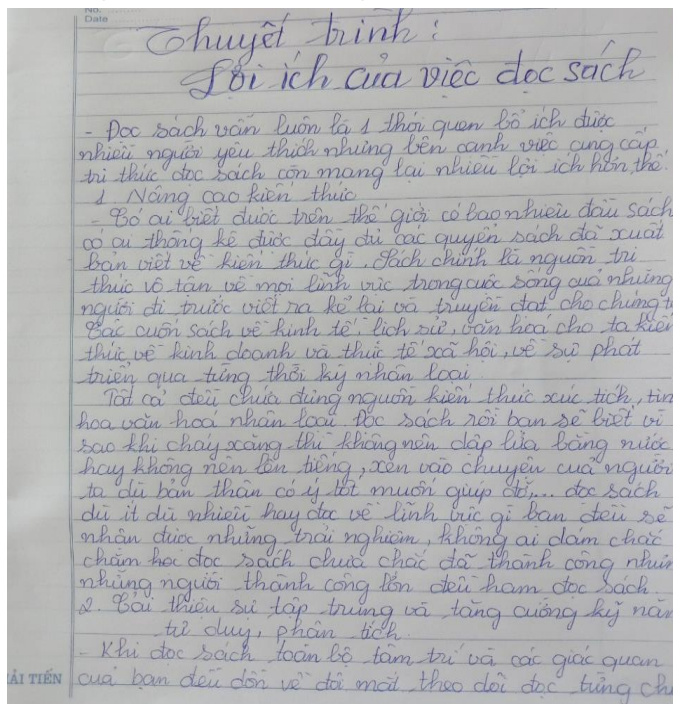 No.
Date
Thuyết trình :
Lợi ích của việc đọc sách
- Đọc sách vẫn luôn là 1 thói quen bổ ích được
nhiều người yêu thích nhưng bên cạnh việc cung cấp
tri thức đọc sách còn mang lại nhiều lợi ích hơn thế.
1. Nâng cao kiến thức
- Có ai biết được trên thế giới có bao nhiêu đầu sách
có ai thống kê được đầy đủ các quyển sách đã xuất
bản viết về kiến thức gì. Sách chính là nguồn tri
thức vô tận về mọi lĩnh vực trong cuộc sống của những
người đi trước viết ra kể lại và truyền đạt cho chúng t
Các cuốn sách về kinh tế, lịch sử, văn hoá cho ta kiến
thức về kinh doanh và thực tế xã hội, về sự phát
triển qua từng thời kỳ nhân loại.
Tất cả đều chứa đựng nguồn kiến thức xúc tích, tin
hoa văn hoá nhân loại. Đọc sách rồi bạn sẽ biết vì
sao khi cháy xăng thì không nên dập lửa bằng nước
hay không nên lên tiếng, xen vào chuyện của người
ta dù bản thân có ý tốt muốn giúp đỡ,... đọc sách
dù ít dù nhiều hay đọc về lĩnh vực gì bạn đều sẽ
nhận được những trải nghiệm, không ai dám chắc
chắm học đọc sách chưa chắc đã thành công như
những người thành công lớn đều ham đọc sách.
2. Cải thiện sự tập trung và tăng cường kỹ năn
tư duy, phân tích.
- Khi đọc sách toàn bộ tâm trí và các giác quan
của bạn đều dồn về đôi mắt theo dõi đọc từng ch
ẢI TIẾN